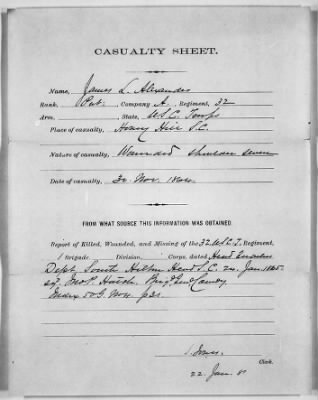 CASUALTY SHEET.
Name, James L. Alexander
Rank, Pvt. Company A, Regiment, 32
Arm, State, U.S.C. Troops
Place of casualty, Honey Hill S.C.
Nature of casualty, Wounded severe
Date of casualty, 30. Nov. 1864.
FROM WHAT SOURCE THIS INFORMATION WAS OBTAINED.
Report of Killed, Wounded, and Missing of the 32 U.S.C.T. Regiment,
1 Brigade, Division, Corps, dated Head Quarters
Dept South Hilton Head S.C. 24. Jan. 1865.
Jno. P. Hatch. Brig. Genl Comdg
Clerk.
22 Jan.